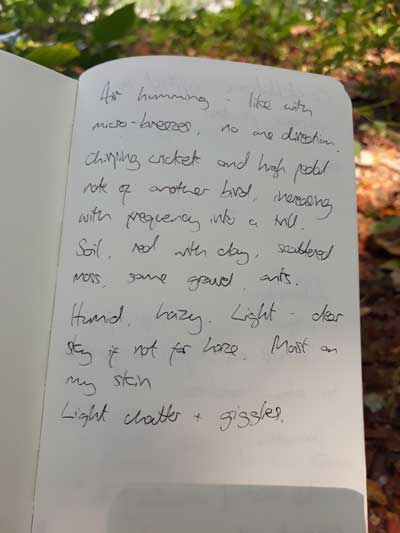 Air humming - like with
micro-breezes, no one direction.
Chirping crickets and high pedal
note of another bird, increasing
with frequency into a trill.
Soil, red with clay, scattered
moss, some ground, ants.
Humid, hazy. Light - clear
sky if not for haze. Moist on
my skin
Light chatter + giggles.